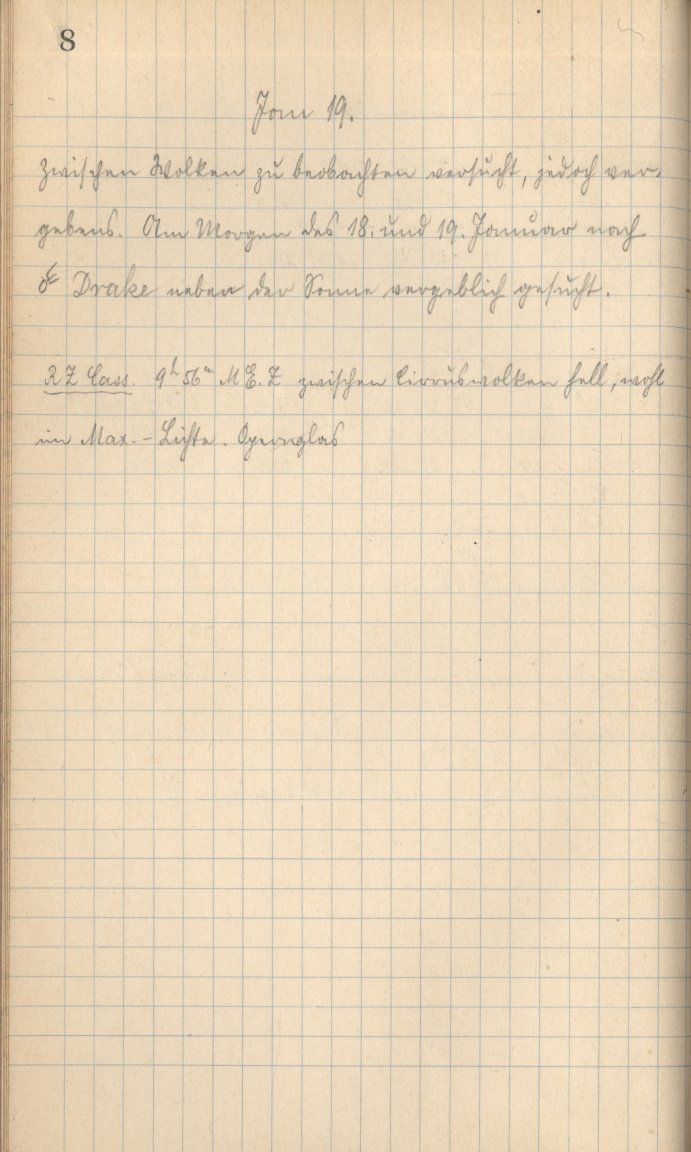 8
Jan 19.
Zwischen Wolken zu beobachten versucht, jedoch ver-
gebens. Am Morgen des 18. und 19. Januar nach
☄ Drake neben der Sonne vergeblich gesucht.
RZ Cass. 9h 56m M.E.Z zwischen Cirruswolken hell, wohl
im Max.-Lichte. Opernglas